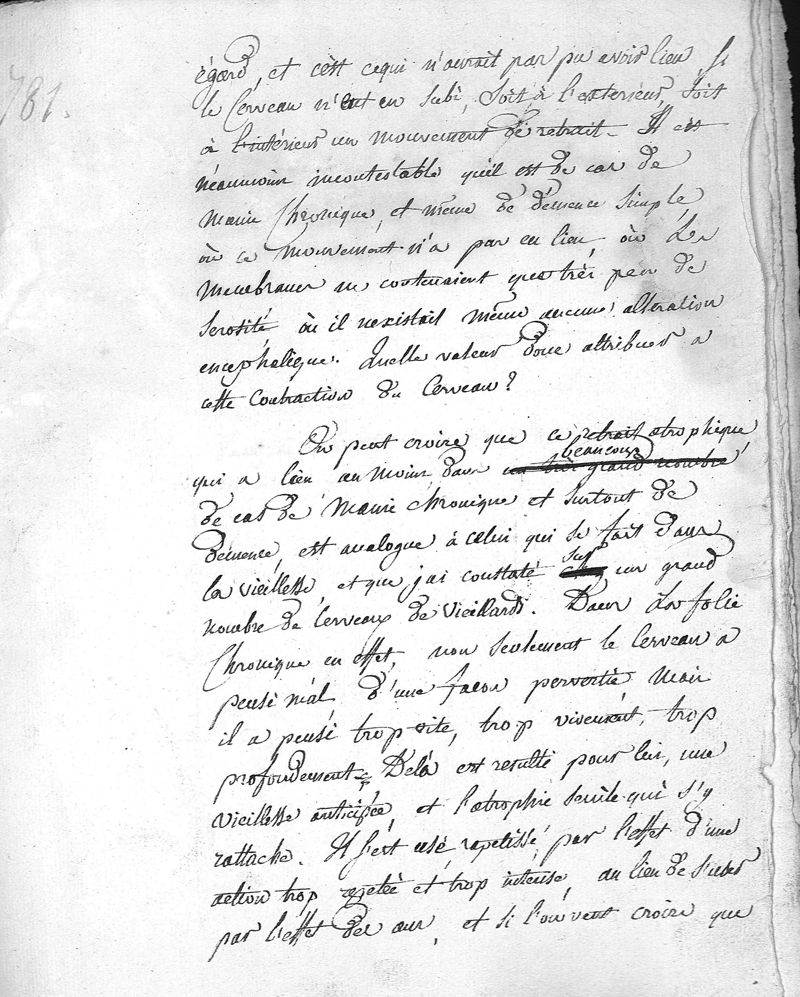 781.
égard, et c'est ce qui n'aurait pas pu avoir lieu, si
le Cerveau n'eut en subi, soit à l'exterieur, soit
à l'intérieur un mouvement de retrait. Il est
néanmoins incontestable qu'il est de cas de
manie Chronique, et même de démence simple
où ce mouvement n'a pas eu lieu, où les
membranes ne contenaient que très peu de
serosité où il n'existait même aucune alteration
encephalique. Quelle valeur donc attribuer a
cette Contraction du Cerveau?
On peut croire que ce retrait atrophique
beaucoup
qui a lieu au moins dans un très grand nombre
de cas de manie chronique et surtout de
démence, est analogue à celui qui se fait dans
sur
la vieillesse, et que j'ai constaté un grand
nombre de Cerveaux de Vieillards. Dans la folie
Chronique en effet, non seulement le Cerveau a
pensé mal d'une façon pervertie mais
il a pensé trop vite, trop vivement, trop
profondement. Delà est resulté pour lui, une
vieillesse anticipée, et l'atrophie senile qui s'y
rattache. Il s'est usé rapetissé par l'effet d'une
action trop repetée et trop intense, au lieu de s'user
par l'effet des ans, et si l'on veut croire que